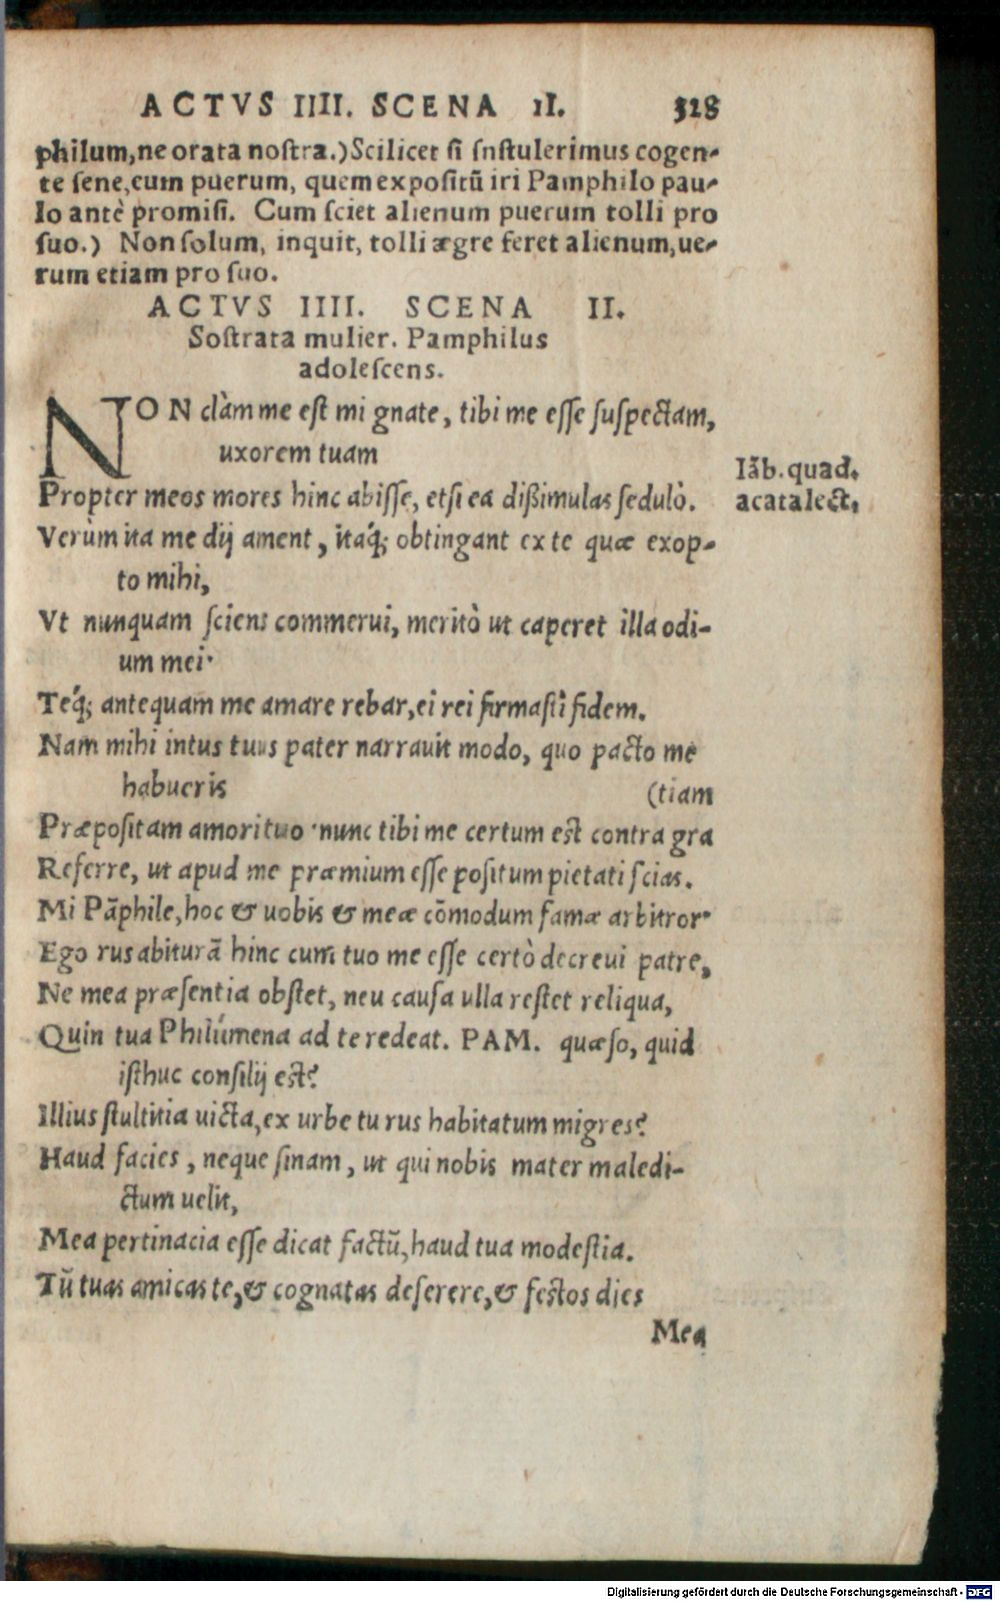 ACTVS IIII. SCENA II. 328
philum, ne orata nostra.) Scilicet si snstulerimus cogen-
te sene, eum puerum, quem expositũ iri Pamphilo pau-
lo antè promisi. Cum sciet alienum puerum tolli pro
suo.) Non solum, inquit, tolli ægre feret alienum, ue-
rum etiam pro suo.
ACTVS IIII. SCENA II.
Sostrata mulier. Pamphilus
adolescens.
NON clàm me est mi gnate, tibi me esse suspectam,
uxorem tuam
Iãb. quad.
Propter meos mores hinc abisse, etsi ea dißimulas sedulò.
acatalect.
Verùm ita me dij ament, itaq́; obtingant ex te quæ exop-
to mihi,
Vt nunquam sciens commerui, meritò ut caperet illa odi-
um mei·
Teq́; antequam me amare rebar, ei rei firmasti fidem.
Nam mihi intus tuus pater narrauit modo, quo pacto me
habueris (tiam
Præpositam amori tuo · nunc tibi me certum est contra gra
Referre, ut apud me præmium esse positum pietati scias.
Mi Pãphile, hoc & uobis & meæ cõmodum famæ arbitror·
Ego rus abiturã hinc cum tuo me esse certò decreui patre,
Ne mea præsentia obstet, neu causa ulla restet reliqua,
Quin tua Philúmena ad te redeat. PAM. quæso, quid
isthuc consilij est?
Illius stultitia uicta, ex urbe tu rus habitatum migres?
Haud facies, neque sinam, ut qui nobis mater maledi-
ctum uelit,
Mea pertinacia esse dicat factũ, haud tua modestia.
Tũ tuas amicas te, & cognatas deserere, & festos dies
Mea
Digitalisierung gefördert durch die Deutsche Forschungsgemeinschaft - DFG